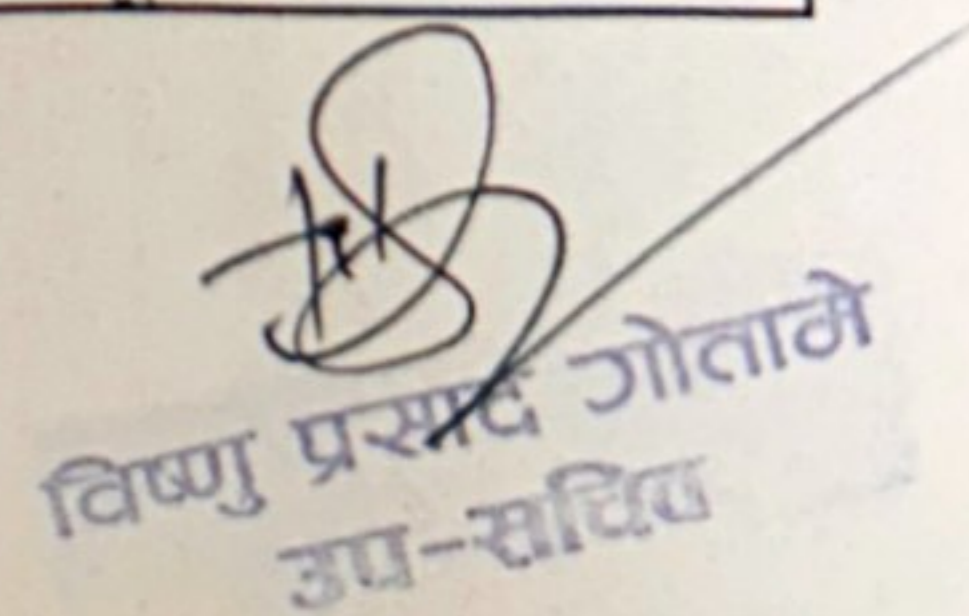 विष्णु प्रसाद गोतामे
उप-सचिव